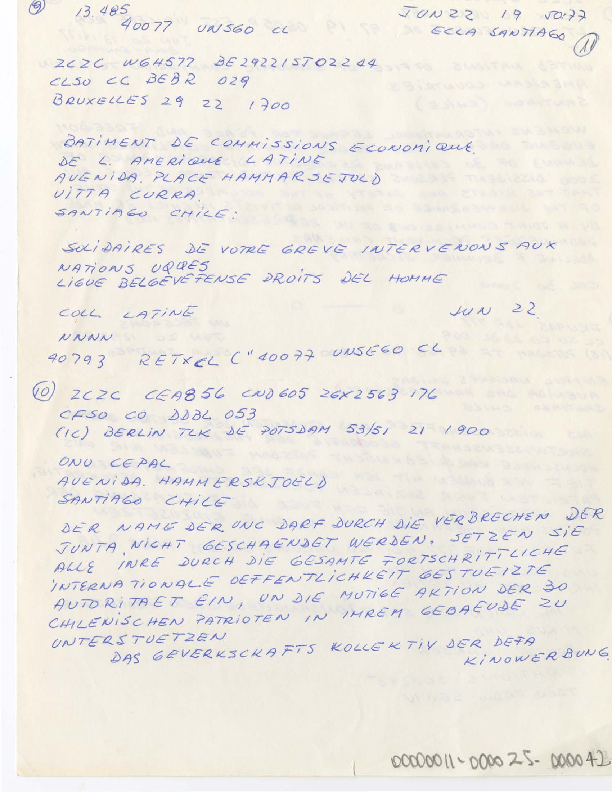 9 13.485 JUN 22 19 50:77
40077 UNSGO CL ECLA SANTIAGO
11
ZCZC WGH577 BE292215T02244
CLSO CC BEBR 029
BRUXELLES 29 22 1700
BATIMENT DE COMMISSIONS ECONOMIQUE
DE L. AMERIQUE LATINE
AVENIDA. PLACE HAMMARSEJOLD
VITTA CURRA
SANTIAGO CHILE:
SOLIDAIRES DE VOTRE GREVE INTERVENONS AUX
NATIONS UQQES
LIGUE BELGEVEFENSE DROITS DEL HOMME
COLL. LATINE JUN 22
NNNN
40793 RETXCL (" 40077 UNSEGO CL
10 ZCZC CEA856 CND605 26X2563 176
CFSO CO DDBL 053
(1C) BERLIN TLK DE POTSDAM 53/51 21 1900
ONU CEPAL
AVENIDA. HAMMERSKJOELD
SANTIAGO CHILE
DER NAME DER UNC DARF DURCH DIE VERBRECHEN DER
JUNTA NICHT GESCHAENDET WERDEN. SETZEN SIE
ALLE INRE DURCH DIE GESAMTE FORTSCHRITTLICHE
INTERNATIONALE OEFFENTLICHKEIT GESTUEIZTE
AUTORITAET EIN, UN DIE MUTIGE AKTION DER 30
CHILENISCHEN PATRIOTEN IN IHREM GEBAEUDE ZU
UNTERSTUETZEN
DAS GEVERKSCKAFTS KOLLEKTIV DER DEFA
KINOWERBUNG.
00000011-000025-000042